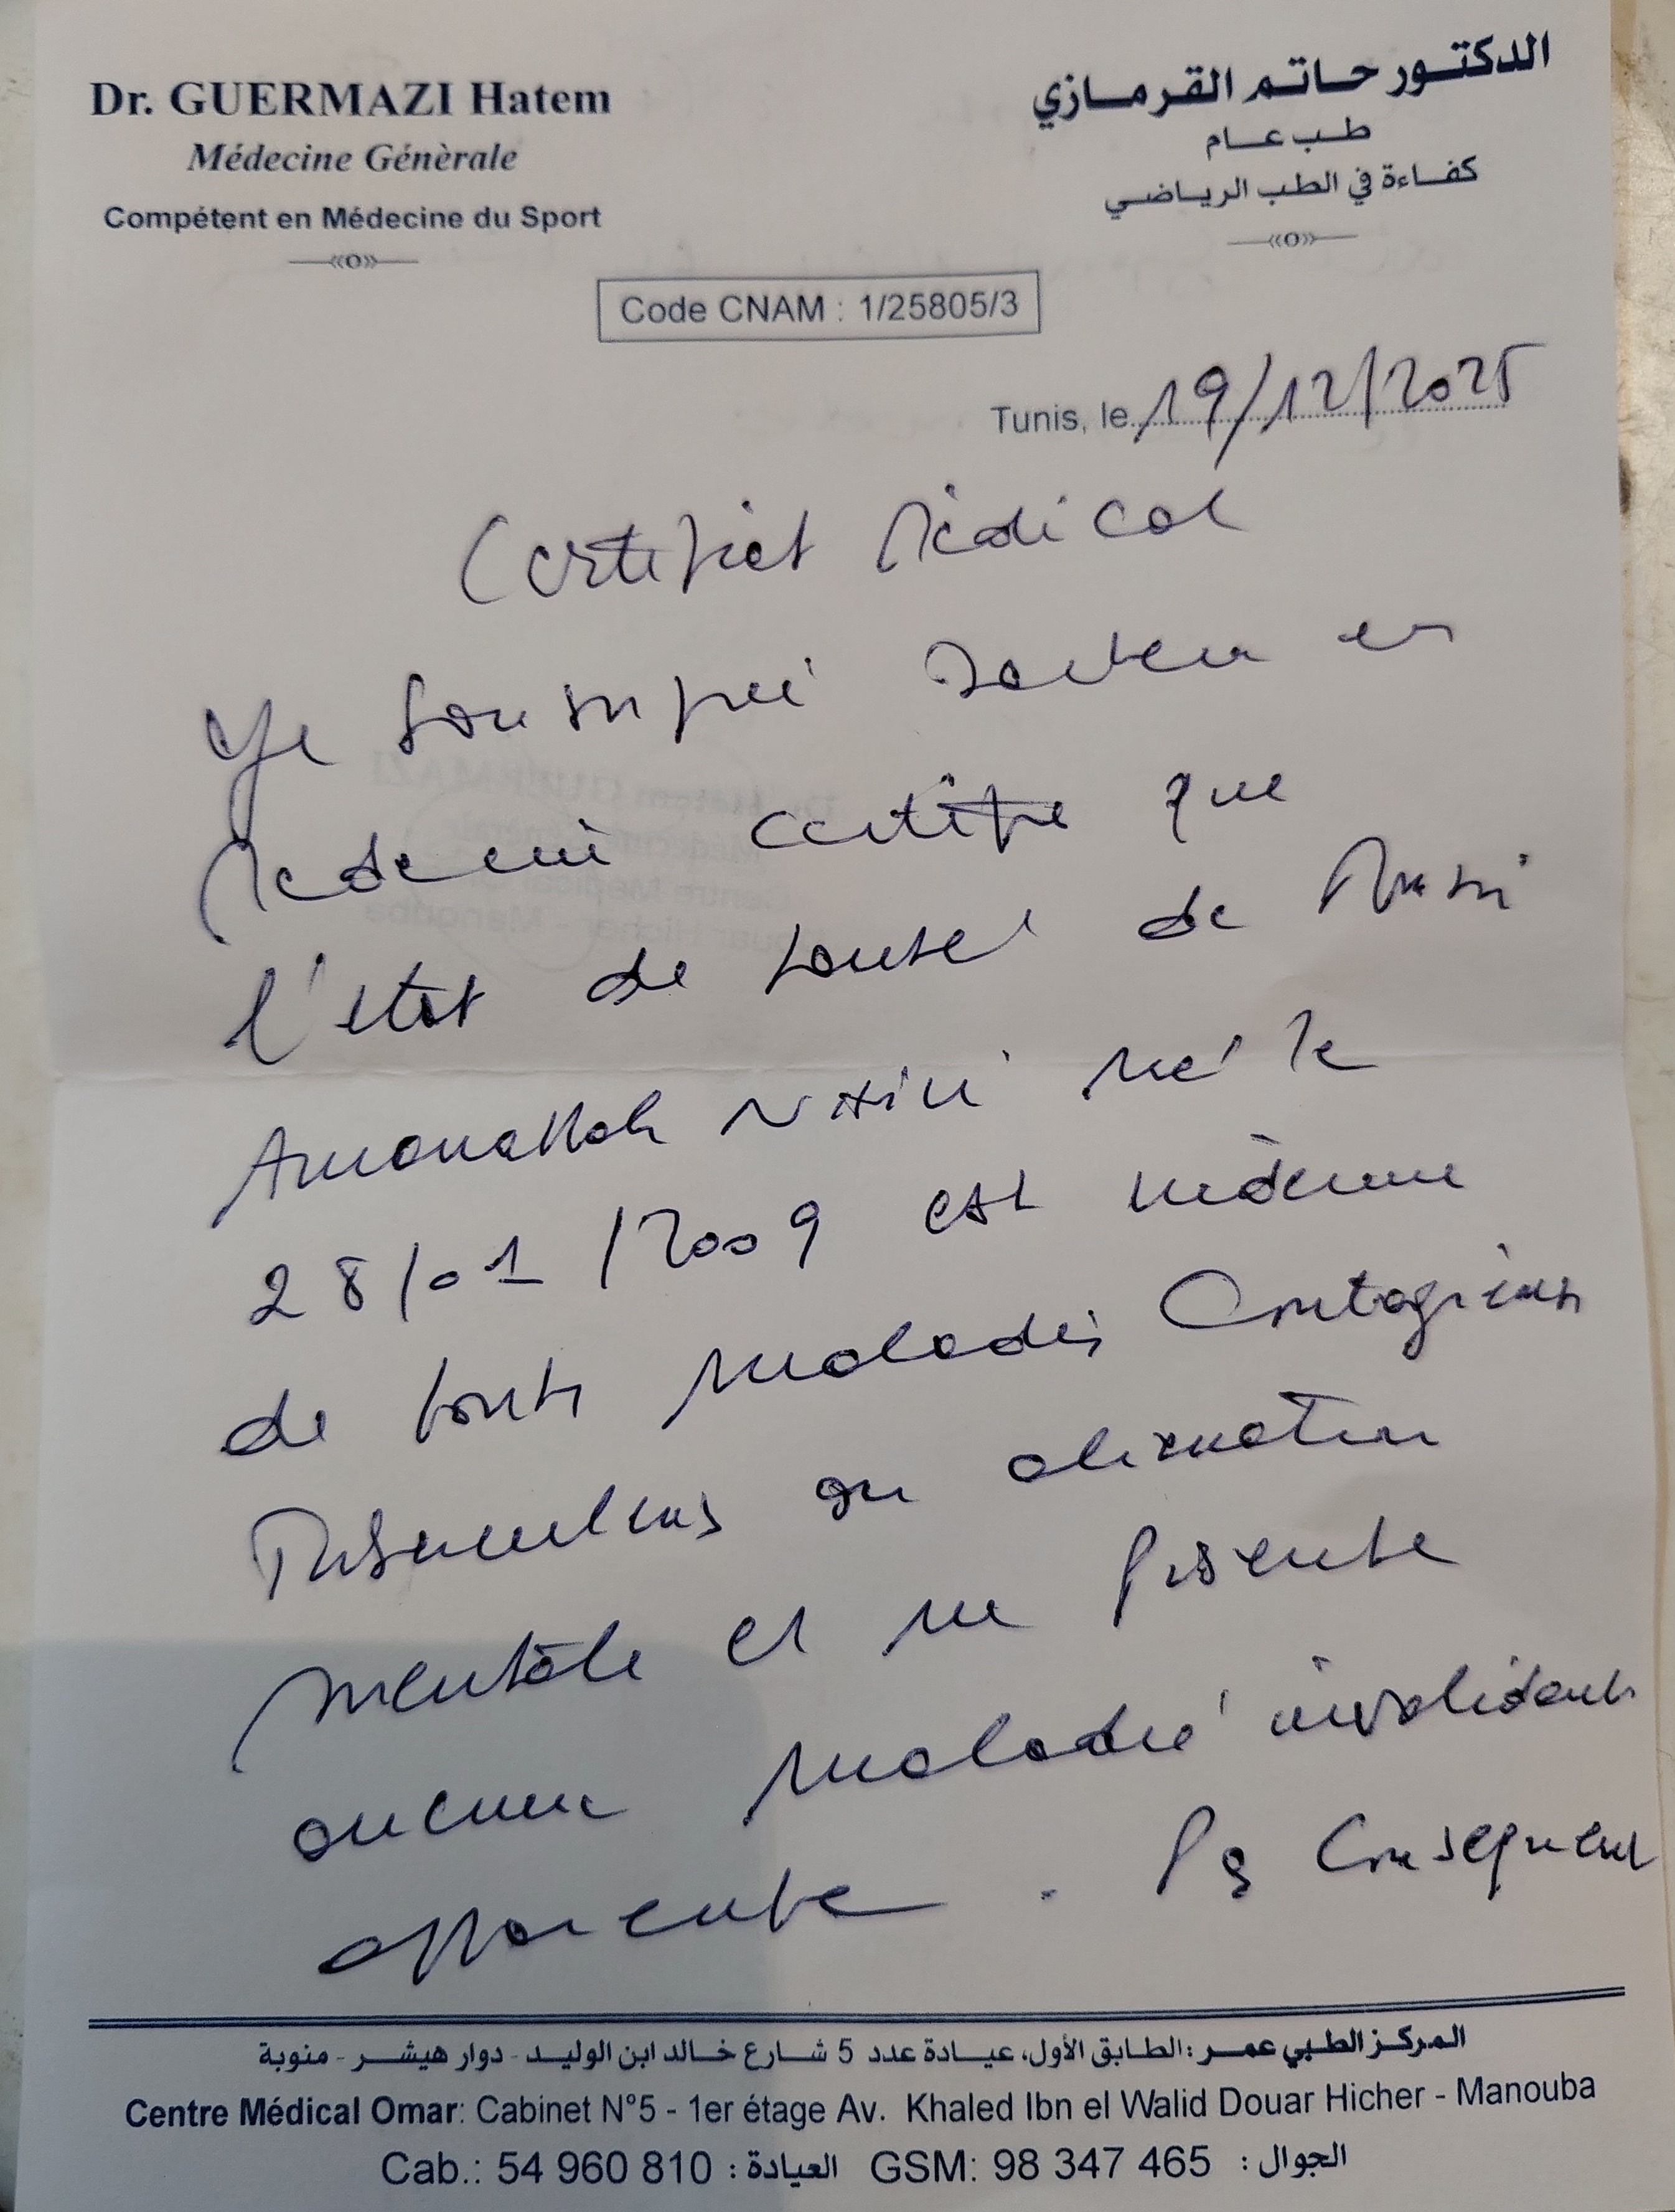 Dr. GUERMAZI Hatem
Médecine Génèrale
Compétent en Médecine du Sport
الدكتور حاتم القرمازي
طب عام
كفاءة في الطب الرياضي
Code CNAM : 1/25805/3
Tunis, le 19/12/2025
Certificat Médical
Je soussigné Docteur en
Médecine certifie que
l'état de santé de
Amanallah né le
28/01/2009 est indemne
de toutes maladies Contagieuses
Tuberculeuses ou alienation
mentale et ne présente
aucune maladie invalidante
apparente. Par Consequent
المركز الطبي عمر: الطابق الأول، عيادة عدد 5 شارع خالد ابن الوليد - دوار هيشر - منوبة
Centre Médical Omar: Cabinet N°5 - 1er étage Av. Khaled Ibn el Walid Douar Hicher - Manouba
Cab.: 54 960 810 العيادة: GSM: 98 347 465 الجوال: